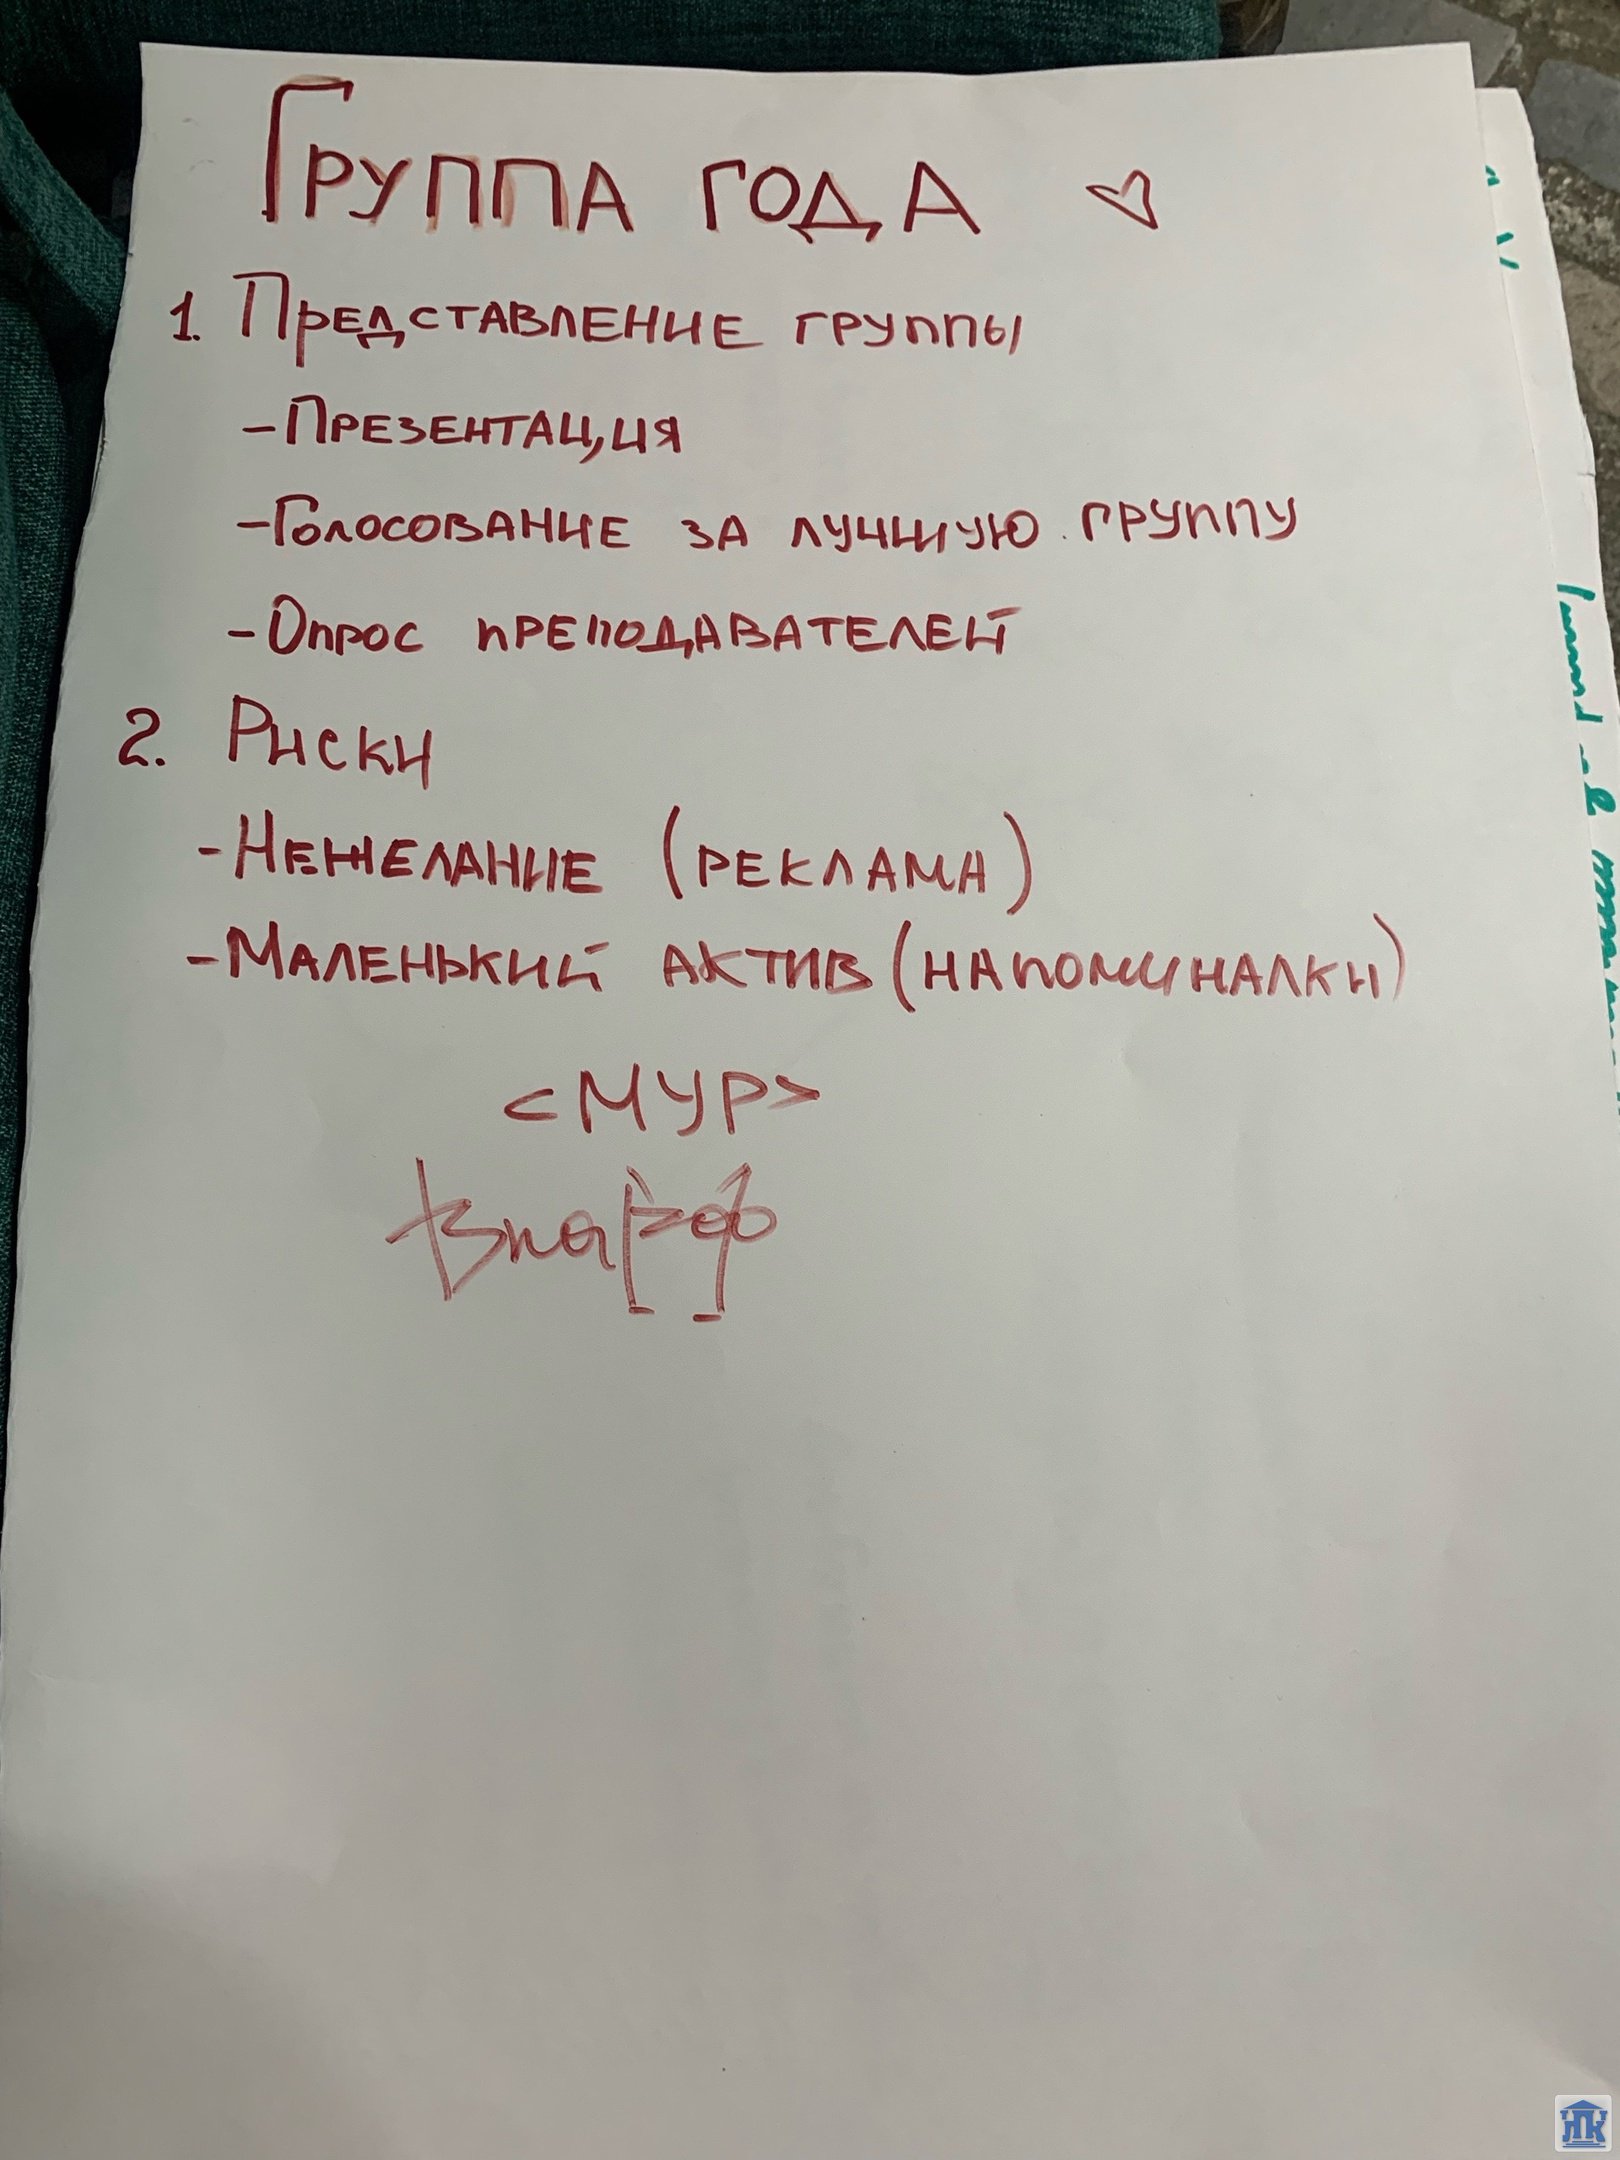 Группа года
1. Представление группы
- Презентация
- Голосование за лучшую группу
- Опрос преподавателей
2. Риски
- Нежелание (реклама)
- Маленький актив (напоминалки)
<МУР>
ЛПК